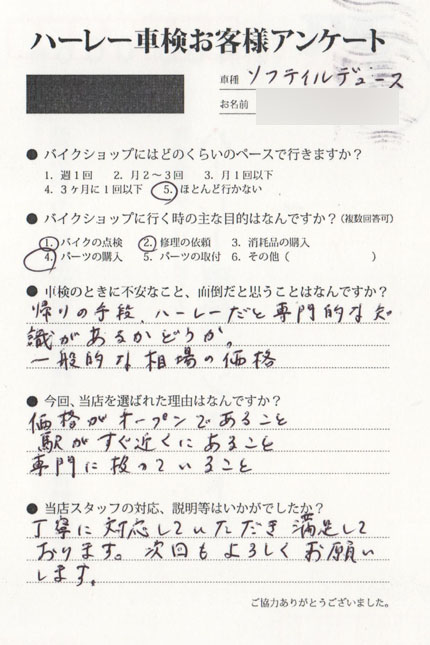 ハーレー車検お客様アンケート
車種 ソフテイルデュース
お名前
● バイクショップにはどのくらいのペースで行きますか？
1. 週1回　2. 月2～3回　3. 月1回以下
4. 3ヶ月に1回以下　5. ほとんど行かない
● バイクショップに行く時の主な目的はなんですか？(複数回答可)
1. バイクの点検　2. 修理の依頼　3. 消耗品の購入
4. パーツの購入　5. パーツの取付　6. その他（　　　　　）
● 車検のときに不安なこと、面倒だと思うことはなんですか？
帰りの手段、ハーレーだと専門的な知
識があるかどうか。
一般的な相場の価格
● 今回、当店を選ばれた理由はなんですか？
価格がオープンであること
駅がすぐ近くにあること
専門に扱っていること
● 当店スタッフの対応、説明等はいかがでしたか？
丁寧に対応していただき満足して
おります。次回もよろしくお願い
します。
ご協力ありがとうございました。